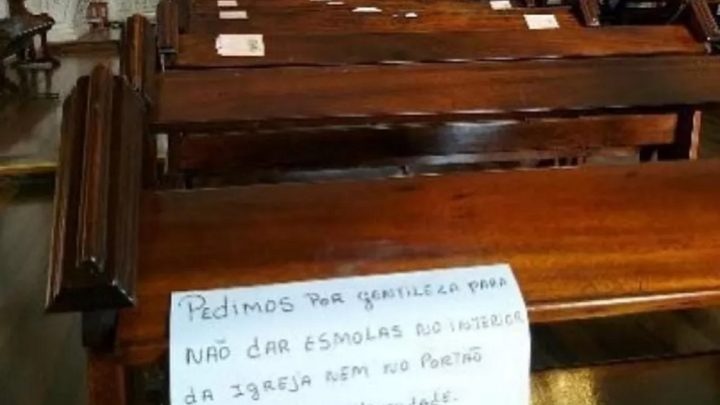 PEDIMOS POR GENTILEZA PARA
NÃO DAR ESMOLAS NO INTERIOR
DA IGREJA NEM NO PORTÃO